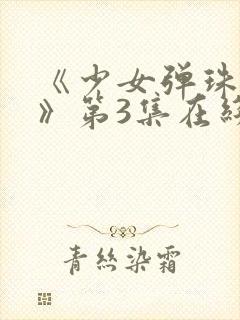 《少女弹珠
》第3集在线
青絲染霜